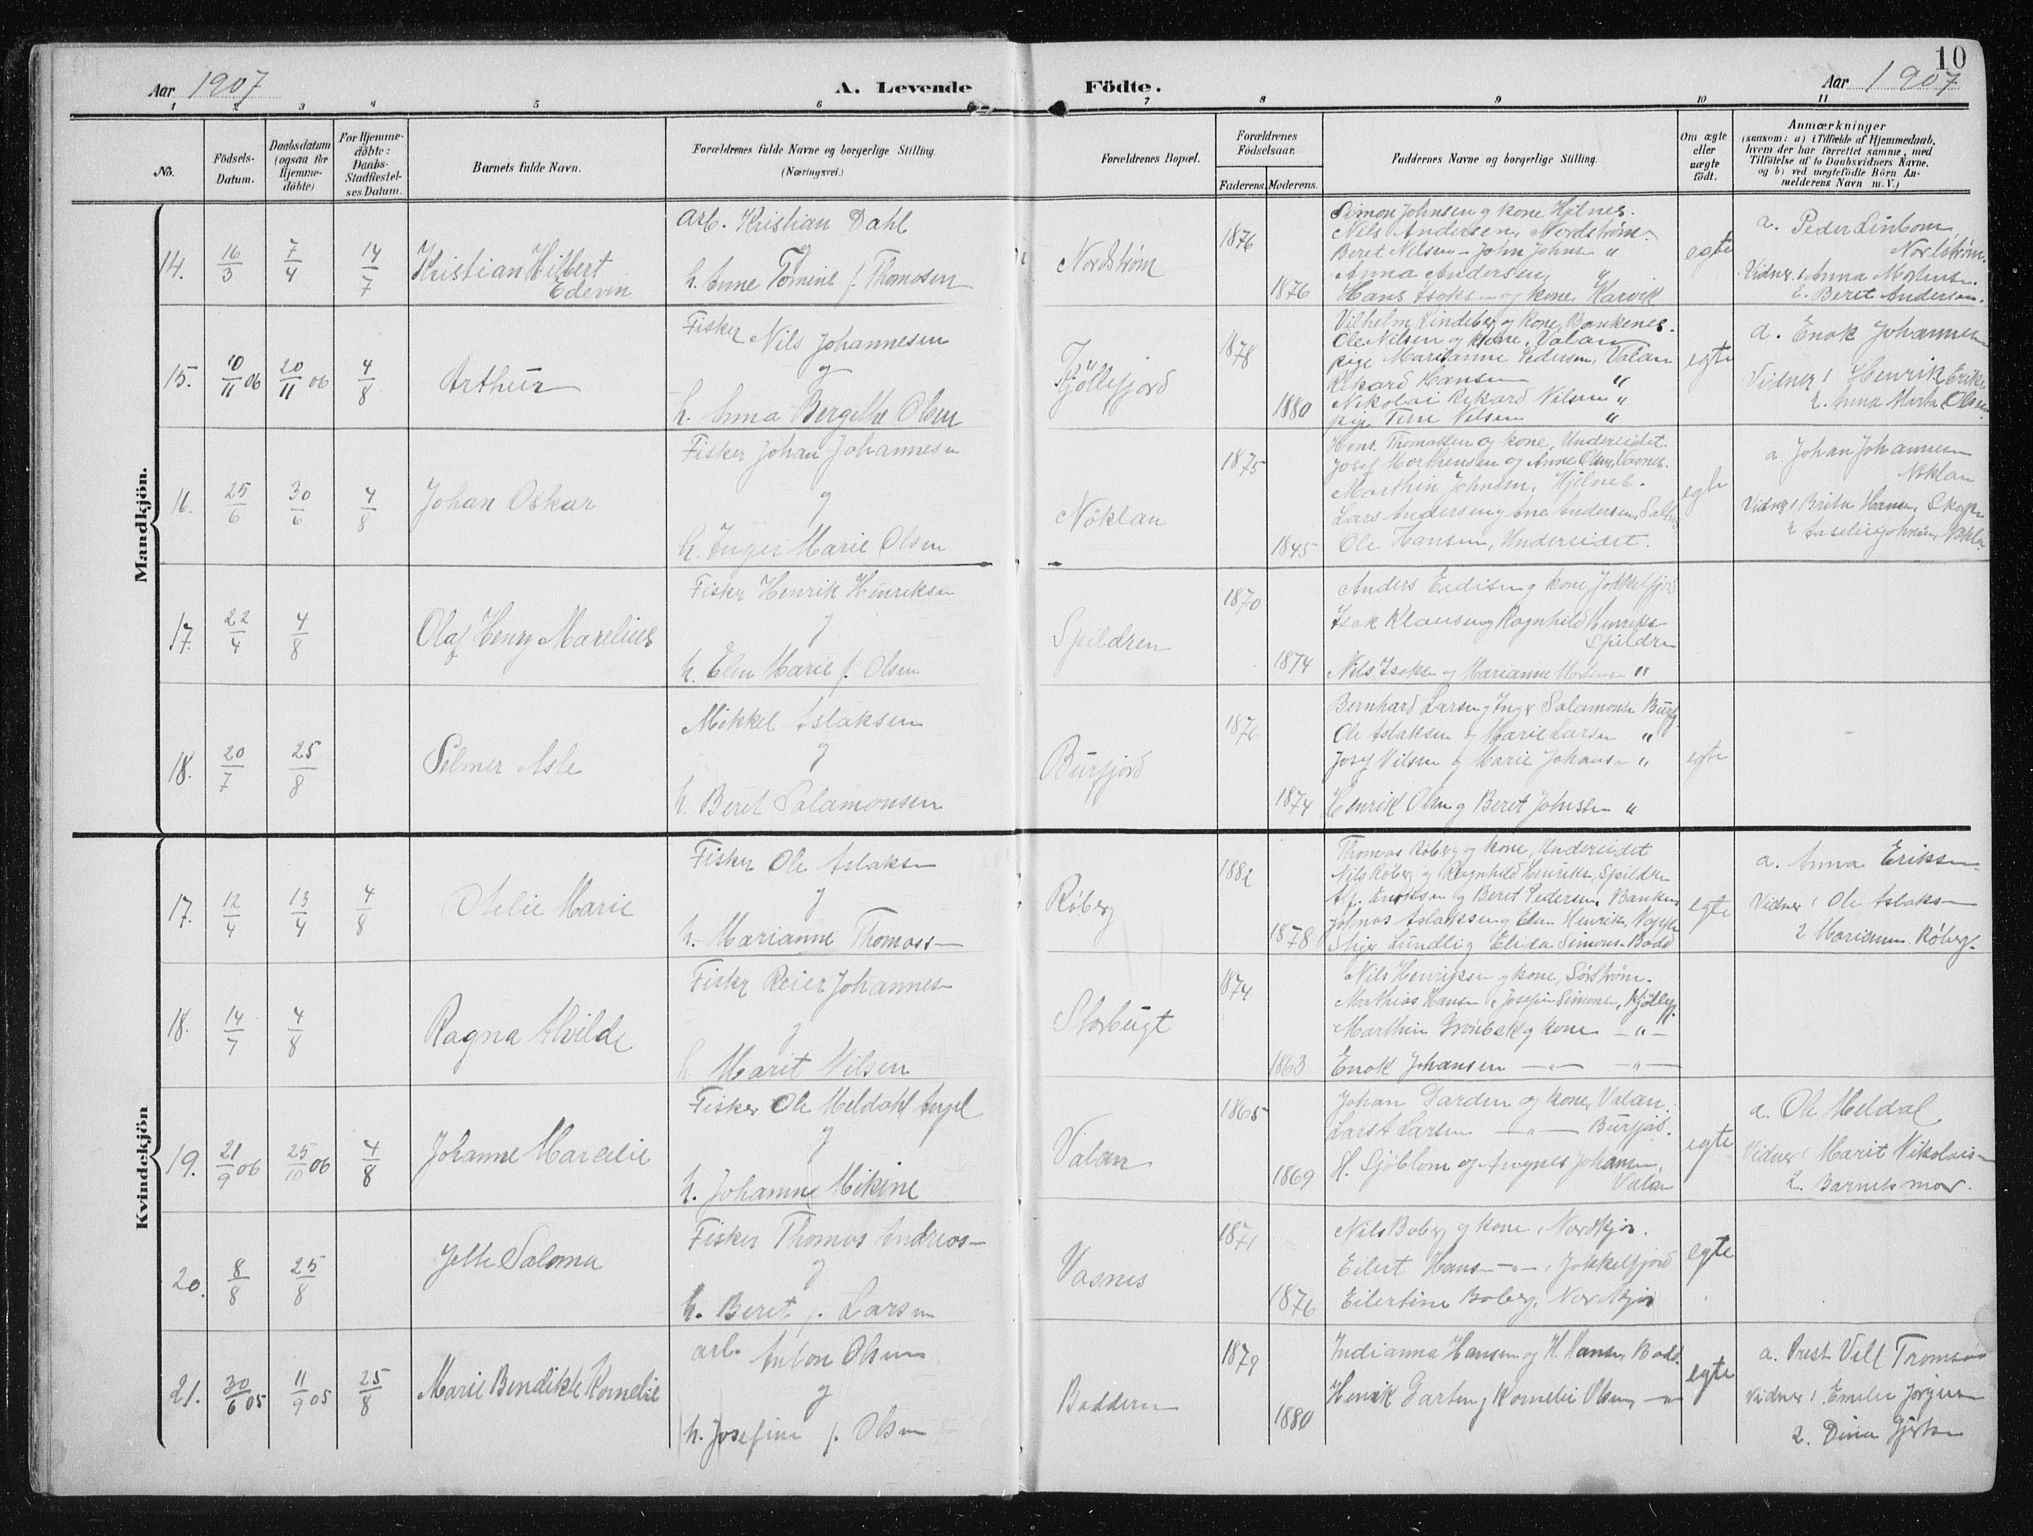 10
Aar 1907 A. Levende Födte. Aar 1907
1 2 3 4 5 6 6 7 8 9 10 11
No.
Födsels-Datum.
Daabsdatum (ogsaa for Hjemme-döbte)
For Hjemme-döbte: Daabs-Stadfæstel-ses Datum.
Barnets fulde Navn.
Forældrenes fulde Navne og borgerlige Stilling.
(Næringsvei.)
Forældrenes Bopæl.
Forældrenes Födselsaar.
Faderens. Moderens.
Faddernes Navne og borgerlige Stilling.
Om ægte eller uægte födt.
Anmærkninger
(saasom: a) i Tilfælde af Hjemmedaab,
hvem der har forrettet samme, med
Tilföielse af to Daabsvidners Navne,
og b) ved uægtefödte Börn An-
melderens Navn m. V.)
Mandkjön.
14. 16/3 7/4 14/7
Kristian Hilbert
Edevin
Arb. Kristian Dahl
og
h. Anne Tomine f. Thomasen
Nordstrøm
1876
1876
Simon Johnsen og kone Hjelnes.
Nils Andersen, Nordstrøm.
Beret Nilsen - John Johns "
Anna Andersen "
Hans Isaksen og kone, Karvik
egte
a. Peder Linbom
Nordstrøm.
Vidner 1 Anna Mortens
2. Beret Andersen.
15. 10/11 06 20/11 06 4/8
Arthur
Fisker Nils Johannesen
og
h. Anna Bergethe Olsen
Kjöllefjord
1878
1880
Vilhelm Lindeberg og kone, Bankenes.
Ole Nilsen og kone, Valan
pige Marianne Pedersen, Valan
Rikard Hansen "
Nikolai Rikard Nilsen "
pige Nilsen "
egte
a. Enok Johannesen
Vidner 1 Henrik Erik
2. Anna Marta Olsen
16. 25/6 30/6 4/8
Johan Oskar
Fisker Johan Johannesen
og
h. Inger Marie Olsen
Nöklan
1875
1845
Hens. Thomassen og kone, Undereidet.
Josef Morthensen og Anne Olsen,
Marthin Johnsen, Hjelnes.
Lars Andersen og Ane Andersen,
Ole Hansen, Undereidet.
egte
a. Johan Johannesen
Nöklan
Vidner 1 Hansen,
2 Johnsen, Nöklan
17. 22/4 4/8
Olaf Henry Marelius
Fisker Henrik Henriksen
og
h. Elen Marie f. Olsen
Spildren
1870
1874
Anders Eidisen og kone, Jokkelfjord
Isak Klausen og Ragnhild Henriks
Spildren
Nils Isaksen og Marianne "
18. 20/7 25/8
Selmer Asle
Mikkel Aslaksen
og
h. Beret Salamonsen
Burfjord
1876
1874
Bernhard Larsen og Inger Salamonsen Burfj
Ole Aslaksen og Marie Larsen "
Josef Nilsen og Marie Johansen "
Henrik Olsen og Beret Johnsen "
egte
Kvindekjön
17. 12/4 13/4 4/8
Aelie Marie
Fisker Ole Aslaksen
og
h. Marianne Thomass-
Røberg
1882
1878
Thomas Røberg og kone, Undereidet
Nils Røberg og Ragnhild Henriks, Spildren
Eriksen og Beret Pedersen, Banken
Johnas Aslaksen og Elen Henrik,
Lundli og Elida Simons
egte
a. Anna Eriksen
Vidner 1 Ole Aslaks-
2 Mariann. Røberg-
18. 14/7 4/8
Ragna Alvilde
Fisker Reier Johannes-
og
h. Marit Nilsen
Storbugt
1874
1863
Nils Henriksen og kone, Sörströn.
Mathias Hansen, Josefin Simons, Kjöllefj.
Marthin Grönbek og kone - " -
Enok Johansen - " - - " -
19. 21/9 06 25/10 06 4/8
Johanne Marcelie
Fisker Ole Meldahl
og
h. Johanne Mikine
Valan
1865
1869
Johan Garden og kone, Valan.
Lars Larsen - " - Burfjor.
H. Sjöblom og Johansen,
Valan
egte
a. Ole Meldal
Vidner 1 Marit Nikolais-
2. Barnets mor.
20. 8/8 25/8
Jette Saloma
Fisker Thomas Andreas-
og
h. Beret f. Larsen
Vasnes
1871
1876
Nils Boberg og kone,
Eilert Hansen - " -, Jokkelfjord
Eilertine Boberg,
egte
21. 30/6 05 11/9 05 25/8
Marie Bendikte Kornelie
arb. Anton Olsen
og
h. Josefine f. Olsen
Badderen
1879
1880
Indianna Hansen og H. Hansen, Badd.
Henrik og Kornelie Olsen, - " -
egte
a. Prest Tromsö
Vidner 1 Emilie Jörgensen
2. Dina